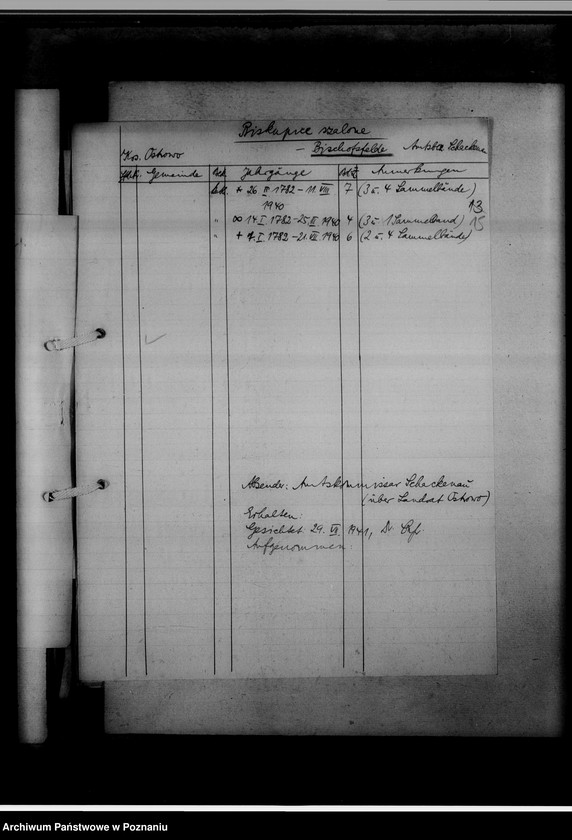 Biskupice szalone
Krs. Ostrowo – Bischofsfelde Amtsbez Schackenau
Gemeinde Bek. Jahrgänge Anmerkungen
kat. * 26. II 1782 – 11. VIII 7 (3 u. 4 Sammelbände)
1940 13
" ∞ 14 I 1782 – 25. II 1940 4 (3 u. 1 Sammelband) 15
" + 7. I 1782 – 21. VII 1940 6 (2 u. 4 Sammelbände)
Absender: Amtskommissar Schackenau
(über Landrat Ostrowo)
Erhalten:
Gesichtet 29. VII 1941, Dr
Aufgenommen:
Archiwum Państwowe w Poznaniu